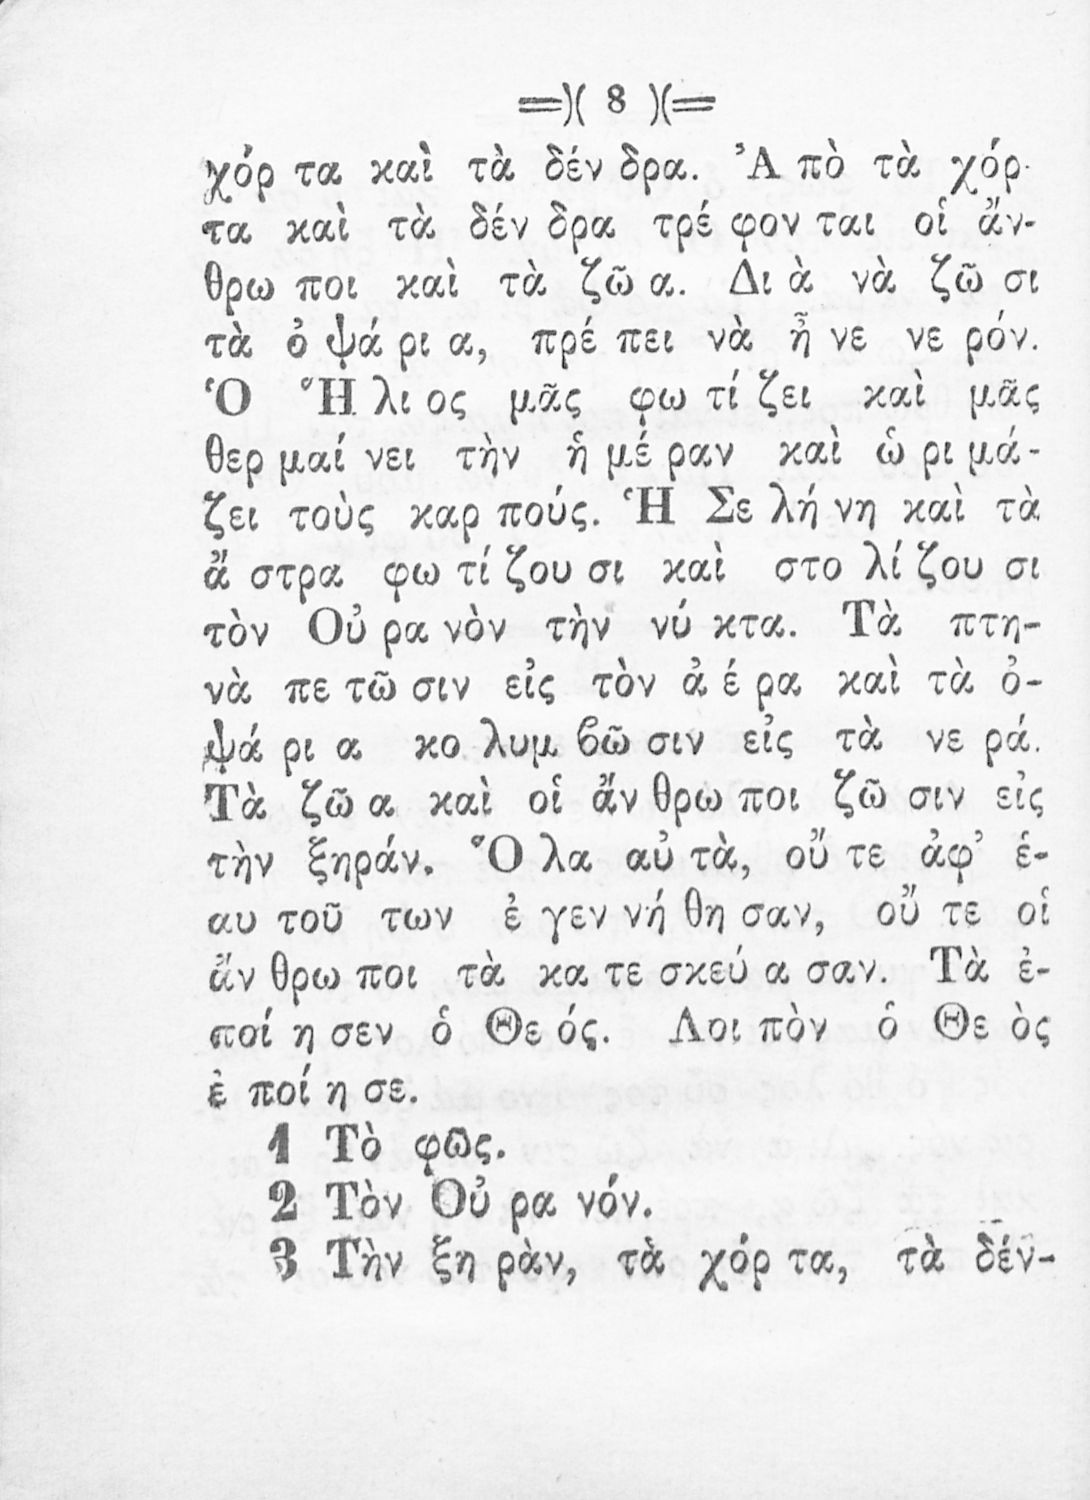 =)( 8 )(=
χόρ τα καὶ τὰ δέν δρα. Ἀ πὸ τὰ χόρ-
τα καὶ τὰ δέν δρα τρέ φον ται οἱ ἄν-
θρω ποι καὶ τὰ ζῶ α. Δι ὰ νὰ ζῶ σι
τὰ ὀ ψά ρι α, πρέ πει νὰ ἦ νε νε ρόν.
Ὁ Ἥ λι ος μᾶς φω τί ζει καὶ μᾶς
θερ μαί νει τὴν ἡ μέ ραν καὶ ὡ ρι μά-
ζει τοὺς καρ πούς. Ἡ Σε λή νη καὶ τὰ
ἄ στρα φω τί ζου σι καὶ στο λί ζου σι
τὸν Οὐ ρα νὸν τὴν νύ κτα. Τὰ πτη-
νὰ πε τῶ σιν εἰς τὸν ἀ έ ρα καὶ τὰ ὀ-
ψά ρι α κο λυμ ϐῶ σιν εἰς τὰ νε ρά.
Τὰ ζῶ α καὶ οἱ ἄν θρω ποι ζῶ σιν εἰς
τὴν ξηράν. Ὅ λα αὐ τὰ, οὔ τε ἀφ’ ἑ-
αυ τοῦ των ἐ γεν νή θη σαν, οὔ τε οἱ
ἄν θρω ποι τὰ κα τε σκεύ α σαν. Τὰ ἐ-
ποί η σεν ὁ Θε ός. Λοι πὸν ὁ Θε ὸς
ἐ ποί η σε.
1 Τὸ φῶς.
2 Τὸν Οὐ ρα νόν.
3 Τὴν ξη ρὰν, τὰ χόρ τα, τὰ δέν-